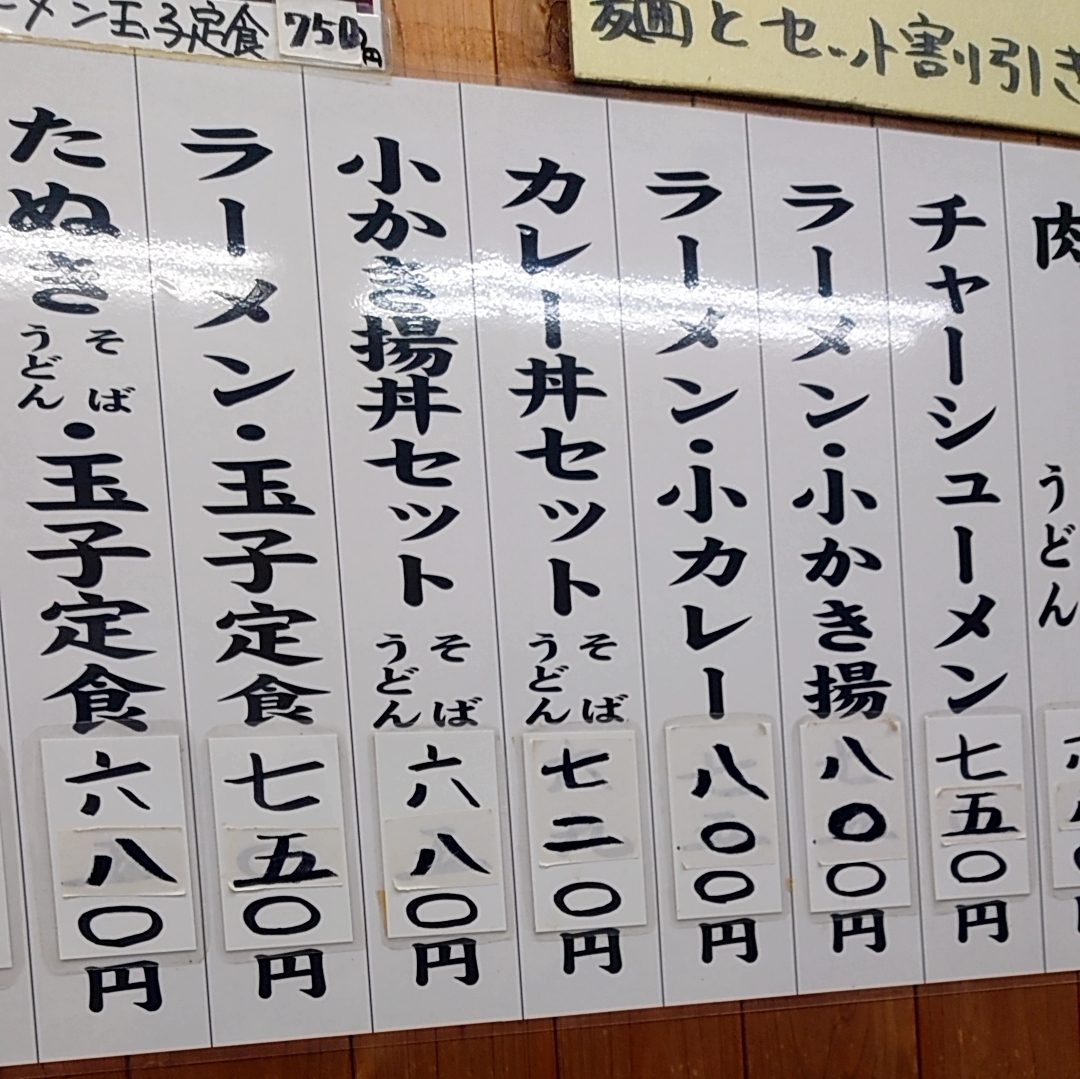 ーメン玉子定食 750円
麺とセット割引き
肉 うどん
チャーシューメン 七五〇円
ラーメン・小かき揚 八〇〇円
ラーメン・小カレー 八〇〇円
カレー丼セット そば うどん 七二〇円
小かき揚丼セット そば うどん 六八〇円
ラーメン・玉子定食 七五〇円
たぬき そば うどん ・玉子定食 六八〇円